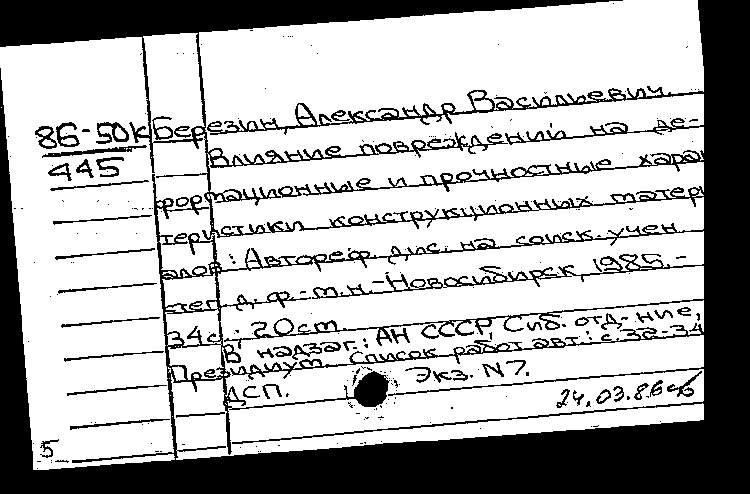 86-50к
445
Березин, Александр Васильевич.
Влияние повреждений на де-
формационные и прочностные харак
теристики конструкционных матери
алов: Автореф. дис. на соиск. учен.
степ. д. ф.-м.н.-Новосибирск, 1985.-
34с.; 20см.
В надзаг.: АН СССР, Сиб. отд-ние,
Президиум. Список работ авт.: с.32-34
ДСП. Экз. N7.
24.03.86
5